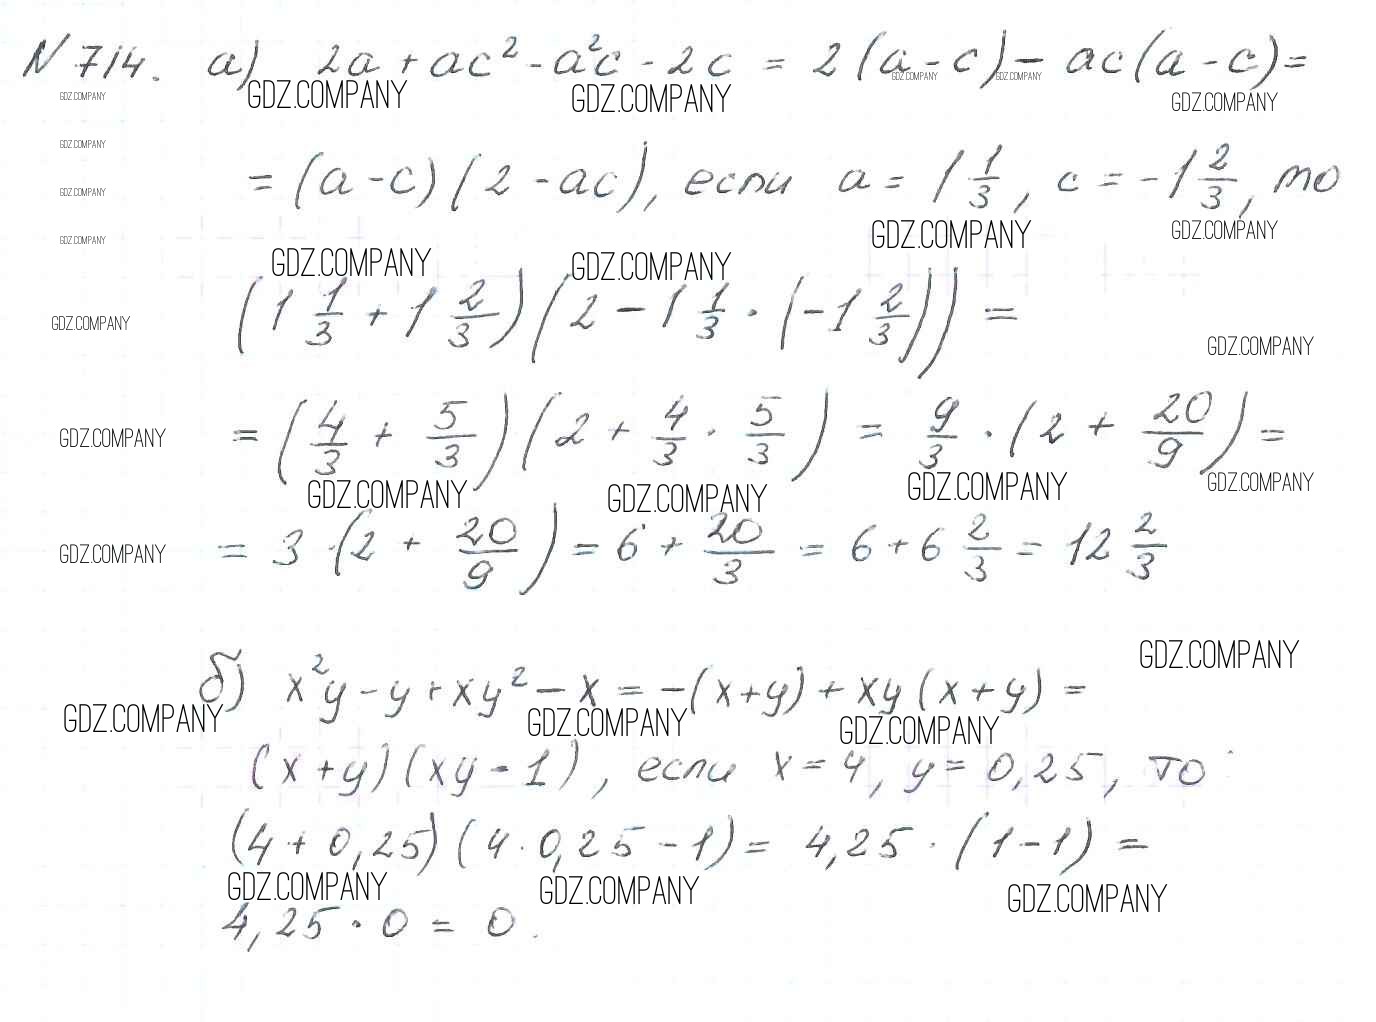 N 714. а) 2a + ac² - a²c - 2c = 2(a - c) - ac(a - c) =
GDZ.COMPANY GDZ.COMPANY GDZ.COMPANY GDZ.COMPANY GDZ.COMPANY GDZ.COMPANY
GDZ.COMPANY
= (a - c)(2 - ac), если a = 1 1/3, c = -1 2/3, то
GDZ.COMPANY
GDZ.COMPANY GDZ.COMPANY GDZ.COMPANY
GDZ.COMPANY GDZ.COMPANY
(1 1/3 + 1 2/3)(2 - 1 1/3 · (-1 2/3)) =
GDZ.COMPANY GDZ.COMPANY
= (4/3 + 5/3)(2 + 4/3 · 5/3) = 9/3 · (2 + 20/9) =
GDZ.COMPANY
GDZ.COMPANY GDZ.COMPANY GDZ.COMPANY GDZ.COMPANY
= 3 · (2 + 20/9) = 6 + 20/3 = 6 + 6 2/3 = 12 2/3
GDZ.COMPANY
GDZ.COMPANY
б) x²y - y + xy² - x = -(x + y) + xy(x + y) =
GDZ.COMPANY GDZ.COMPANY GDZ.COMPANY
(x + y)(xy - 1), если x = 4, y = 0,25, то
(4 + 0,25)(4 · 0,25 - 1) = 4,25 · (1 - 1) =
GDZ.COMPANY GDZ.COMPANY GDZ.COMPANY
4,25 · 0 = 0.